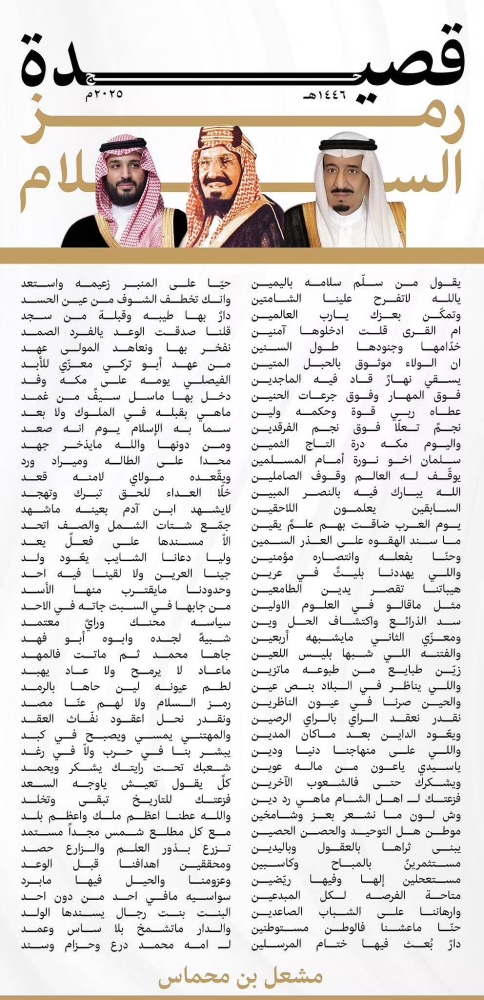 قصيدة
حج
١٤٤٦هـ ٢٠٢٥م
رمز
السلام
يقول من سلّم سلامه باليمين حيّا على المنبر زعيمه واستعد
يالله لاتفرح علينا الشامتين وانك تخطف الشوف من عين الحسد
وتمكّن بعزك يارب العالمين دارٌ بها طيبه وقبلة من سجد
ام القرى قلت ادخلوها آمنين قلنا صدقت الوعد يالفرد الصمد
خدّامها وجنودها طول السنين نفخر بها ونعاهد المولى عهد
ان الولاء موثوق بالحبل المتين من عهد أبو تركي معزّي للأبد
يسقي نهارٌ قاد فيه الماجدين الفيصلي يومه على مكه وفد
فوق المهار وفوق جرعات الحنين دخل بها ماسل سيفٌ من غمد
عطاه ربي قوة وحكمه ولين ماهي بقبله في الملوك ولا بعد
نجمٌ تعلّا فوق نجم الفرقدين سما به الإسلام يوم انه صعد
واليوم مكه درة التاج الثمين ومن دونها والله مايذخر جهد
سلمان اخو نورة أمام المسلمين محدا على الطاله وميراد ورد
يوقف له العالم وقوف الصاملين ويقعده مولاي لامنه قعد
الله يبارك فيه بالنصر المبين خلّا العداء للحق تبرك وتهجد
السابقين يعلمون اللاحقين لايشهد ابن آدم بعينه ماشهد
يوم العرب ضاقت بهم علمٌ يقين جمّع شتات الشمل والصف اتحد
ما سند الهقوه على العذر السمين الاّ مسندها على فعلٌ يعد
وحنّا بفعله وانتصاره مؤمنين وليا دعانا الشايب يعّود ولد
واللي يهددنا بليثٌ في عرين جينا العرين ولا لقينا فيه احد
هيباتنا تقصر يدين الطامعين وحدودنا مايقترب منها الأسد
مثل ماقالو في العلوم الاولين من جابها في السبت جاته في الاحد
سد الذرائع واكتشاف الحل وين سياسه محنك ورايٌ معتمد
ومعزّي الثاني مايشبهه أربعين شبيهٌ لجده وابوه أبو فهد
والفتنه اللي شبها بليس اللعين جاها محمد ثم ماتت فالمهد
زيّن طبايع من طبوعه ماتزين ماعاد لا يرمح ولا عاد يهبد
واللي يناظر في البلاد بنص عين لطم عيونه لين حاها بالرمد
والحين صرنا في عيون الناظرين رمز السلام ولا لهم عنّا مصد
نقدر نعقد الراي بالراي الرصين ونقدر نحل اعقود نفّاث العقد
ويعّود الداين بعد ماكان المدين والمهتني يمسي ويصبح في كبد
واللي على منهاجنا دنيا ودين يبشر بنا في حرب ولاّ في رغد
ياسيدي ياعون من ماله عوين شعبك تحت رايتك يشكر ويحمد
ويشكرك حتى فالشعوب الآخرين كلٌ يقول تعيش ياوجه السعد
فزعتك لـ اهل الشام ماهي رد دين فزعتك للتاريخ تبقى وتخلد
وش لون ما نشعر بعز وشامخين والله عطنا اعظم ملك واعظم بلد
موطن هل التوحيد والحصن الحصين مع كل مطلع شمس مجداً مستمد
يبنى ثراها بالعقول وباليدين تزرع بذور العلم والزارع حصد
مستثمرينٌ بالمباح وكاسبين ومحققين اهدافنا قبل الوعد
مستعجلين إلها وفيها ريّضين وعزومنا والحيل فيها مابرد
متاحة الفرصه لكل المبدعين سواسيه مافي احد من دون احد
وارهاننا على الشباب الصاعدين البنت بنت رجال يسندها الولد
حنّا ماعشنا فالوطن مستوطنين والدار ماتشمخ بلا ساس وعمد
دارٌ بُعث فيها ختام المرسلين لـ امه محمد درع وحزام وسند
مشعل بن محماس